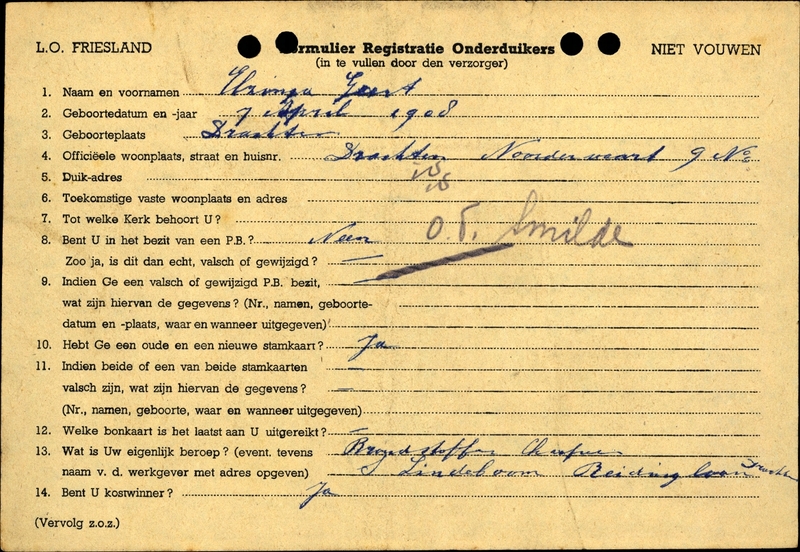 L.O. FRIESLAND
Formulier Registratie Onderduikers
NIET VOUWEN
(in te vullen door den verzorger)
1. Naam en voornamen Geert
2. Geboortedatum en -jaar 7 April 1908
3. Geboorteplaats Drachten
4. Officiëele woonplaats, straat en huisnr. Drachten Noorder 9 No
5. Duik-adres
6. Toekomstige vaste woonplaats en adres
7. Tot welke Kerk behoort U?
8. Bent U in het bezit van een P.B.? Neen O.T. Smilde
Zoo ja, is dit dan echt, valsch of gewijzigd? —
9. Indien Ge een valsch of gewijzigd P.B. bezit, —
wat zijn hiervan de gegevens? (Nr., namen, geboorte-
datum en -plaats, waar en wanneer uitgegeven)
10. Hebt Ge een oude en een nieuwe stamkaart? Ja
11. Indien beide of een van beide stamkaarten —
valsch zijn, wat zijn hiervan de gegevens? —
(Nr., namen, geboorte, waar en wanneer uitgegeven)
12. Welke bonkaart is het laatst aan U uitgereikt? —
13. Wat is Uw eigenlijk beroep? (event. tevens
naam v. d. werkgever met adres opgeven) Lindeboom
14. Bent U kostwinner? Ja
(Vervolg z.o.z.)